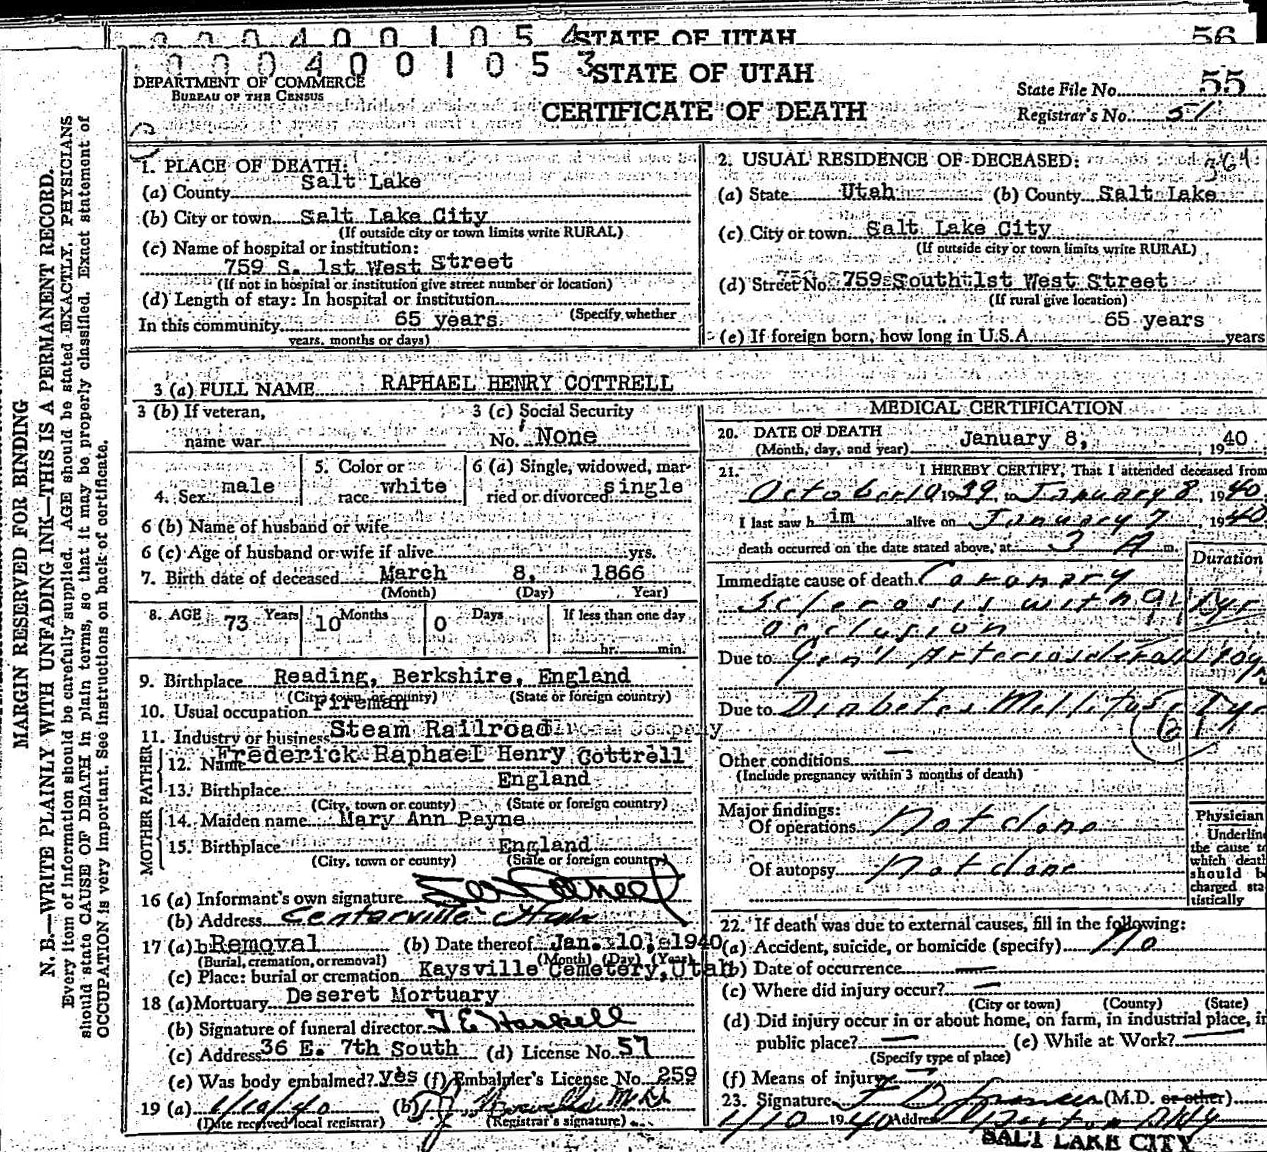 0004001054 STATE OF UTAH 56
0004001053 STATE OF UTAH
DEPARTMENT OF COMMERCE
BUREAU OF THE CENSUS
CERTIFICATE OF DEATH
State File No. 55
Registrar's No. 51
MARGIN RESERVED FOR BINDING
N. B.—WRITE PLAINLY WITH UNFADING INK—THIS IS A PERMANENT RECORD.
Every item of information should be carefully supplied. AGE should be stated EXACTLY. PHYSICIANS
should state CAUSE OF DEATH in plain terms, so that it may be properly classified. Exact statement of
OCCUPATION is very important. See instructions on back of certificate.
1. PLACE OF DEATH:
(a) County Salt Lake
(b) City or town Salt Lake City
(If outside city or town limits write RURAL)
(c) Name of hospital or institution:
759 S. 1st West Street
(If not in hospital or institution give street number or location)
(d) Length of stay: In hospital or institution
(Specify whether
In this community 65 years
years, months or days)
2. USUAL RESIDENCE OF DECEASED:
(a) State Utah (b) County Salt Lake
(c) City or town Salt Lake City
(If outside city or town limits write RURAL)
(d) Street No. 759 South 1st West Street
(If rural give location)
65 years
(e) If foreign born, how long in U.S.A. years
3 (a) FULL NAME RAPHAEL HENRY COTTRELL
3 (b) If veteran,
name war
3 (c) Social Security
No. None
4. Sex male
5. Color or
race white
6 (a) Single, widowed, mar-
ried or divorced single
6 (b) Name of husband or wife
6 (c) Age of husband or wife if alive yrs.
7. Birth date of deceased March 8, 1866
(Month) (Day) Year)
8. AGE 73 Years 10 Months 0 Days If less than one day
hr. min.
9. Birthplace Reading, Berkshire, England
(City town or county) (State or foreign country)
10. Usual occupation Fireman
11. Industry or business Steam Railroad
FATHER
12. Name Frederick Raphael Henry Cottrell
13. Birthplace England
(City, town or county) (State or foreign country)
MOTHER
14. Maiden name Mary Ann Payne
15. Birthplace England
(City, town or county) (State or foreign country)
16 (a) Informant's own signature
(b) Address Centerville Utah
17 (a) Removal (b) Date thereof Jan. 10, 1940
(Burial, cremation, or removal) (Month) (Day) (Year)
(c) Place: burial or cremation Kaysville Cemetery, Utah
18 (a) Mortuary Deseret Mortuary
(b) Signature of funeral director T E Haskell
(c) Address 36 E. 7th South (d) License No. 57
(e) Was body embalmed? yes (f) Embalmer's License No. 259
19 (a) 1/10/40 (b)
(Date received local registrar) (Registrar's signature)
MEDICAL CERTIFICATION
20. DATE OF DEATH
(Month, day, and year) January 8, 1940
21. I HEREBY CERTIFY, That I attended deceased from
October 10 1939, to January 8, 1940
I last saw h im alive on January 7, 1940
death occurred on the date stated above, at 3 A m.
Duration
Immediate cause of death Coronary
Sclerosis with
occlusion
Due to Gen'l Arteriosclerosis
Due to Diabetes Mellitus
Other conditions —
(Include pregnancy within 3 months of death)
Major findings:
Of operations Not done
Of autopsy Not done
Physician
Underline
the cause to
which death
should be
charged sta-
tistically
22. If death was due to external causes, fill in the following:
(a) Accident, suicide, or homicide (specify) No
(b) Date of occurrence —
(c) Where did injury occur? —
(City or town) (County) (State)
(d) Did injury occur in or about home, on farm, in industrial place, in
public place? — (e) While at Work? —
(Specify type of place)
(f) Means of injury —
23. Signature (M.D. or other)
1/10 1940 Address
SALT LAKE CITY